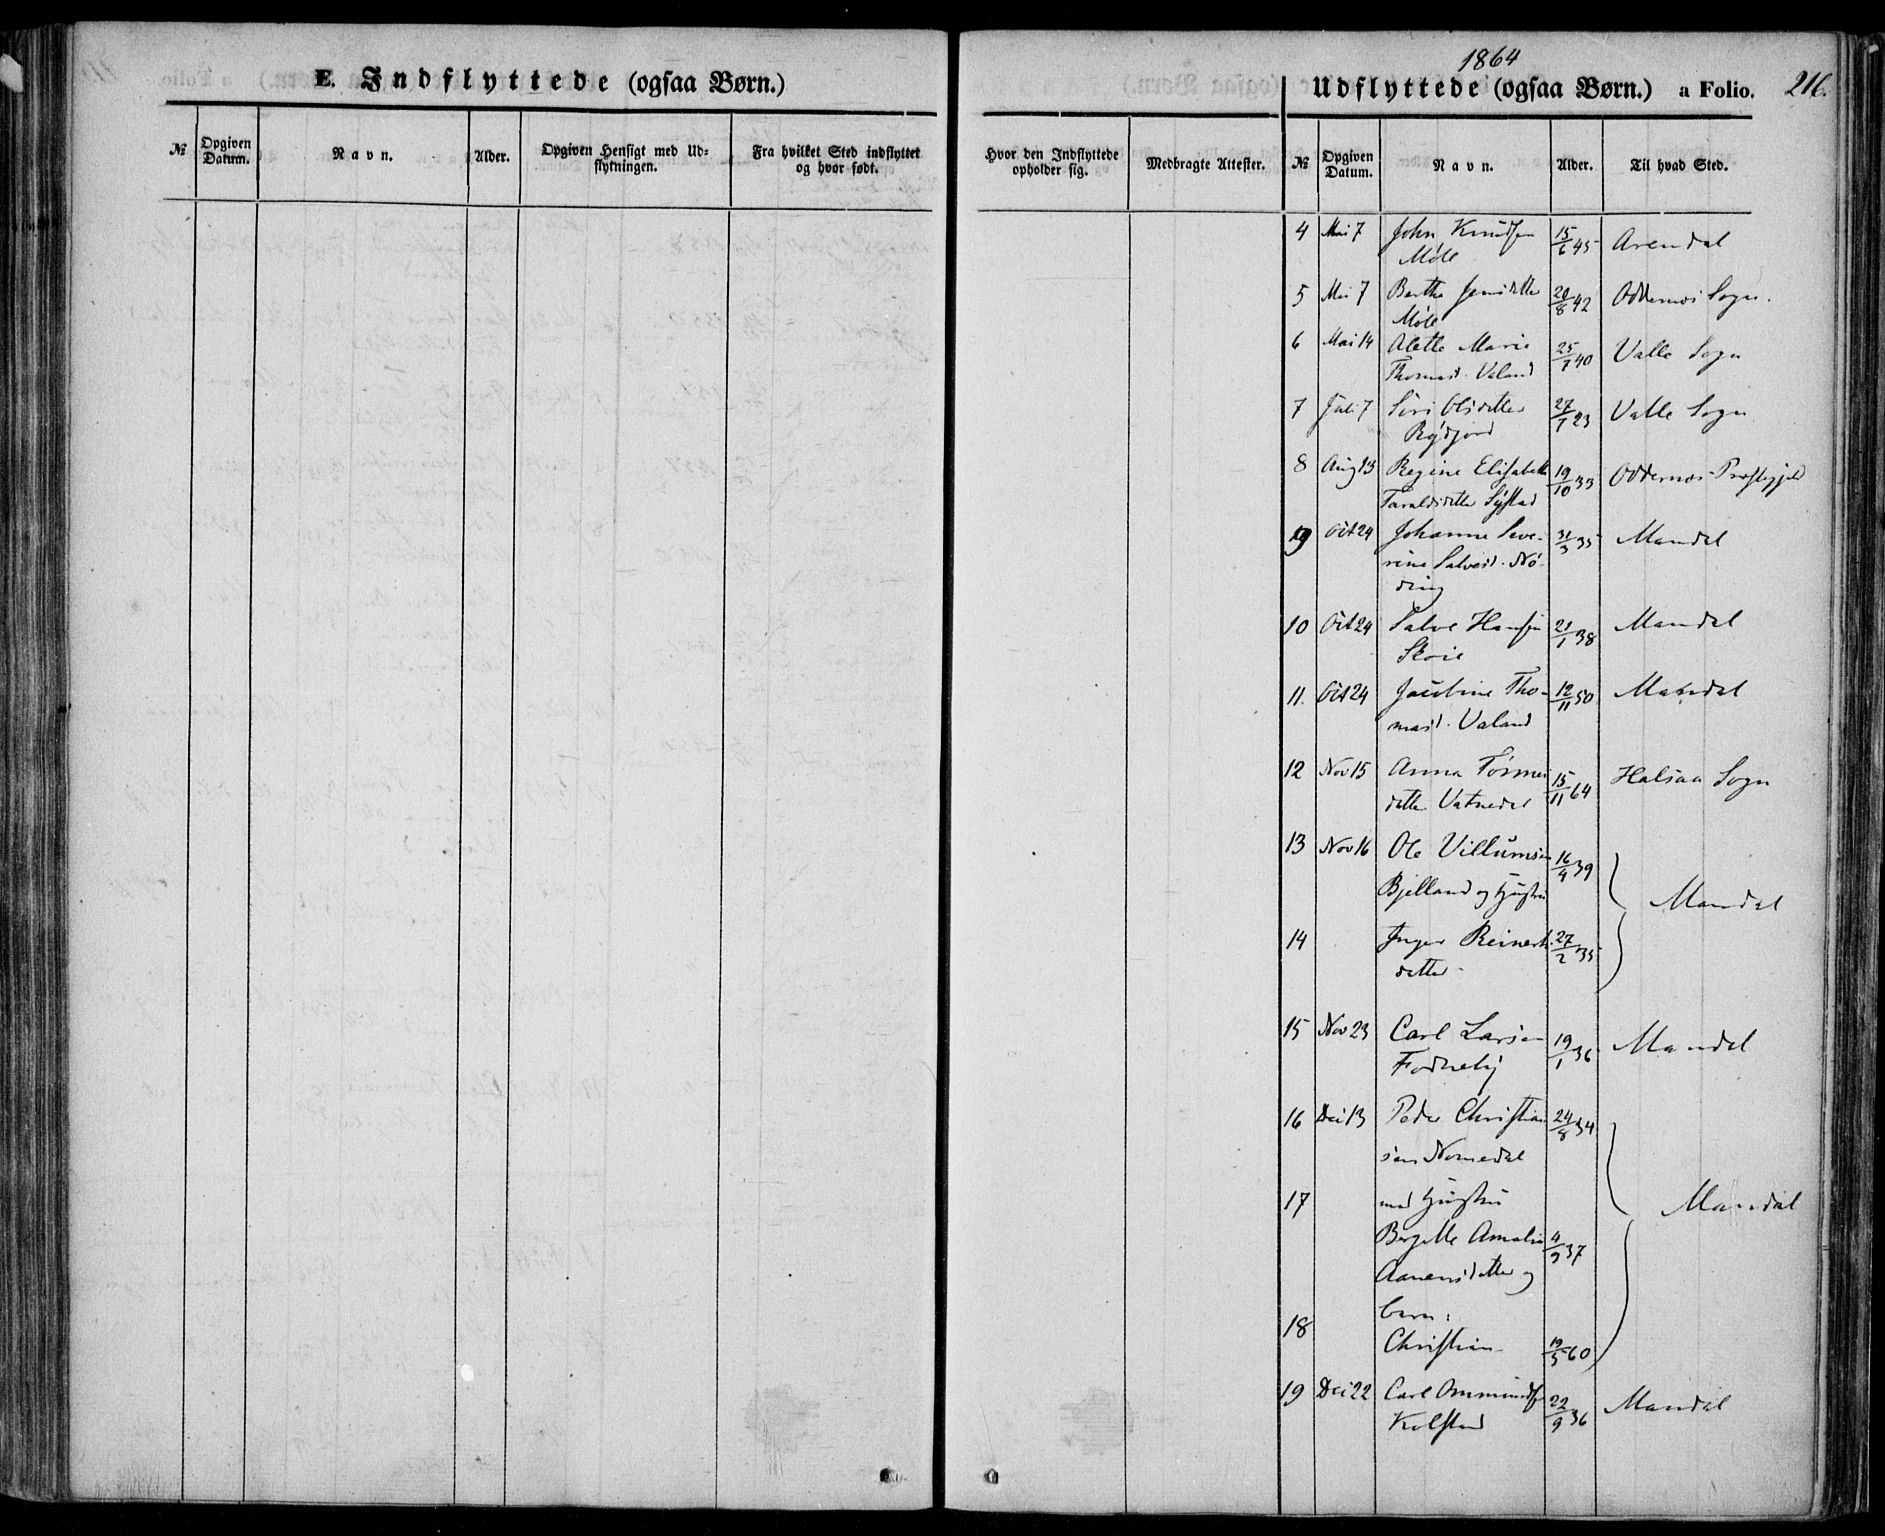 E. Indflyttede (ogsaa Børn.)
№
Opgiven Datum.
Navn.
Alder.
Opgiven Hensigt med Ud-
flytningen.
Fra hvilket Sted indflyttet
og hvor født.
Hvor den Indflyttede
opholder sig.
Medbragte Attester.
1864
Udflyttede (ogsaa Børn.) a Folio. 216.
№
Opgiven Datum.
Navn.
Alder.
Til hvad Sted.
4 Mai 7 John Knudsen 15/6 45 Arendal
Møle
5 Mai 7 Berthe Jensdatter 20/8 42 Oddernes Sogn.
Møle
6 Mai 14 Alette Marie 25/7 40 Valle Sogn
Thomasd. Valand
7 Juli 7 Siri Olsdatter 27/7 23 Valle Sogn
8 Aug 13 Regine Elisabeth 19/10 33 Oddernes Præstegjeld
Taraldsdatter
9 Oct 24 Johanne Seve- 31/3 35 Mandal
rine Salvesd. Nø-
ding
10 Oct 24 Salve Hansen 21/1 38 Mandal
Skoie
11. Oct 24 Jacobine Tho- 12/11 50 Mandal
masd. Valand
12 Nov 15 Anna Tønnes 15/11 64 Halsaa Sogn
datter Vatnedal
13 Nov 16 Ole Villumsen 16/4 39
Bjelland og Hustru
Mandal
14 Inger Reinerts 27/2 35
datter
15 Nov 23 Carl Larsen 19/1 36 Mandal
Fodneby
16 Dec 13 Peder Christian 24/8 34
sen Nomedal
17 med Hustru
Mandal
Bergitte Amalia 4/9 37
Aanensdatter og
18 barn:
Christian 19/5 60
19 Dec 22 Carl Ommundsen 22/9 36 Mandal
Kolstad